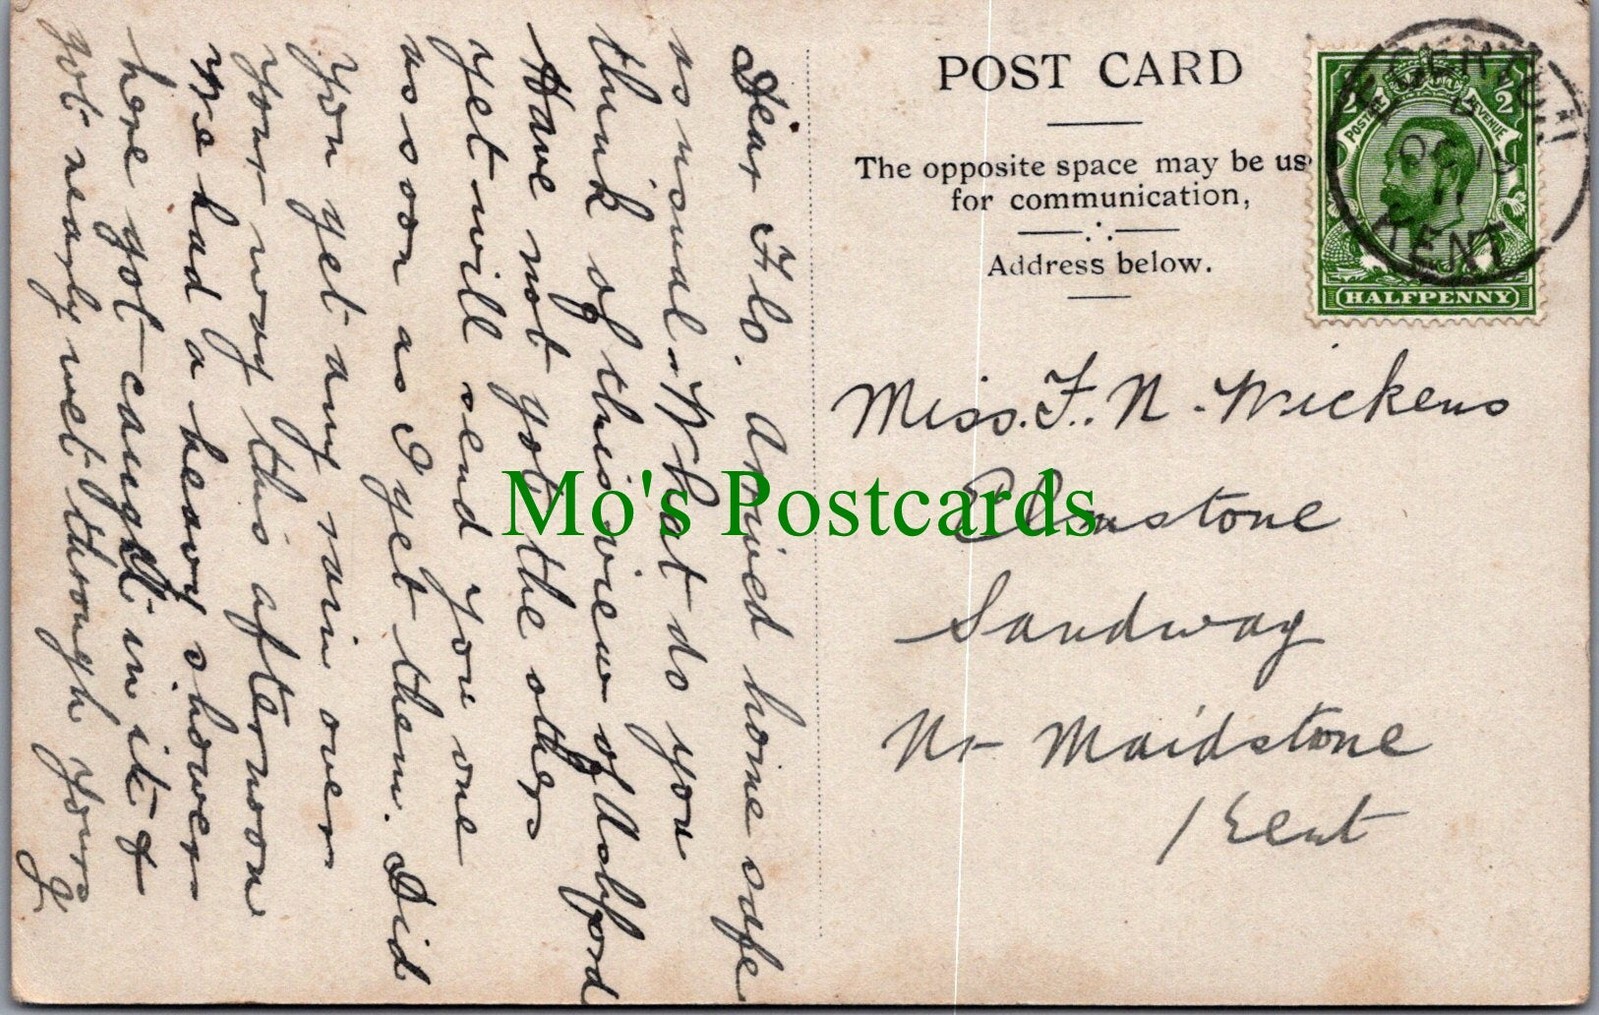 Dear Flo. Arrived home safe
as usual. What do you
think of this view of Ashford
Have not got the others
yet will send you one
as soon as I get them. Did
you get any rain over
your way this afternoon
We had a heavy shower
here got caught in it &
got nearly wet through yours
POST CARD
The opposite space may be us
for communication,
Address below.
1/2 1/2
POSTAGE REVENUE
HALFPENNY
OC 13
11
KENT
Miss. F. N. Wickens
Elmstone
Sandway
Nr Maidstone
Kent
Mo's Postcards